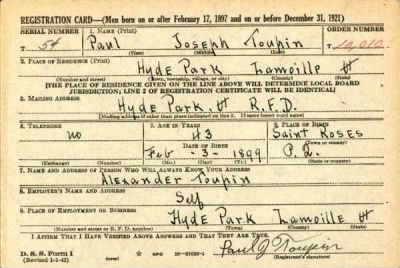 REGISTRATION CARD—(Men born on or after February 17, 1897 and on or before December 31, 1921)
SERIAL NUMBER 1. NAME (Print) ORDER NUMBER
T 54 Paul Joseph Toupin
(First) (Middle) (Last)
2. PLACE OF RESIDENCE (Print)
Hyde Park Lamoille Vt
(Number and street) (Town, township, village, or city) (County) (State)
[THE PLACE OF RESIDENCE GIVEN ON THE LINE ABOVE WILL DETERMINE LOCAL BOARD
JURISDICTION; LINE 2 OF REGISTRATION CERTIFICATE WILL BE IDENTICAL]
3. MAILING ADDRESS
Hyde Park Vt R.F.D.
[Mailing address if other than place indicated on line 2. If same insert word same]
4. TELEPHONE 5. AGE IN YEARS 6. PLACE OF BIRTH
no 43 Saint Roses
DATE OF BIRTH (Town or county)
Feb - 3 - 1899 P.Q.
(Exchange) (Number) (Mo.) (Day) (Yr.) (State or country)
7. NAME AND ADDRESS OF PERSON WHO WILL ALWAYS KNOW YOUR ADDRESS
Alexander Toupin
8. EMPLOYER'S NAME AND ADDRESS
Self
9. PLACE OF EMPLOYMENT OR BUSINESS
Hyde Park Lamoille Vt
(Number and street or R. F. D. number) (Town) (County) (State)
I AFFIRM THAT I HAVE VERIFIED ABOVE ANSWERS AND THAT THEY ARE TRUE.
D. S. S. Form 1
(Revised 1-1-42) GPO 16—21630-1 Paul J Toupin